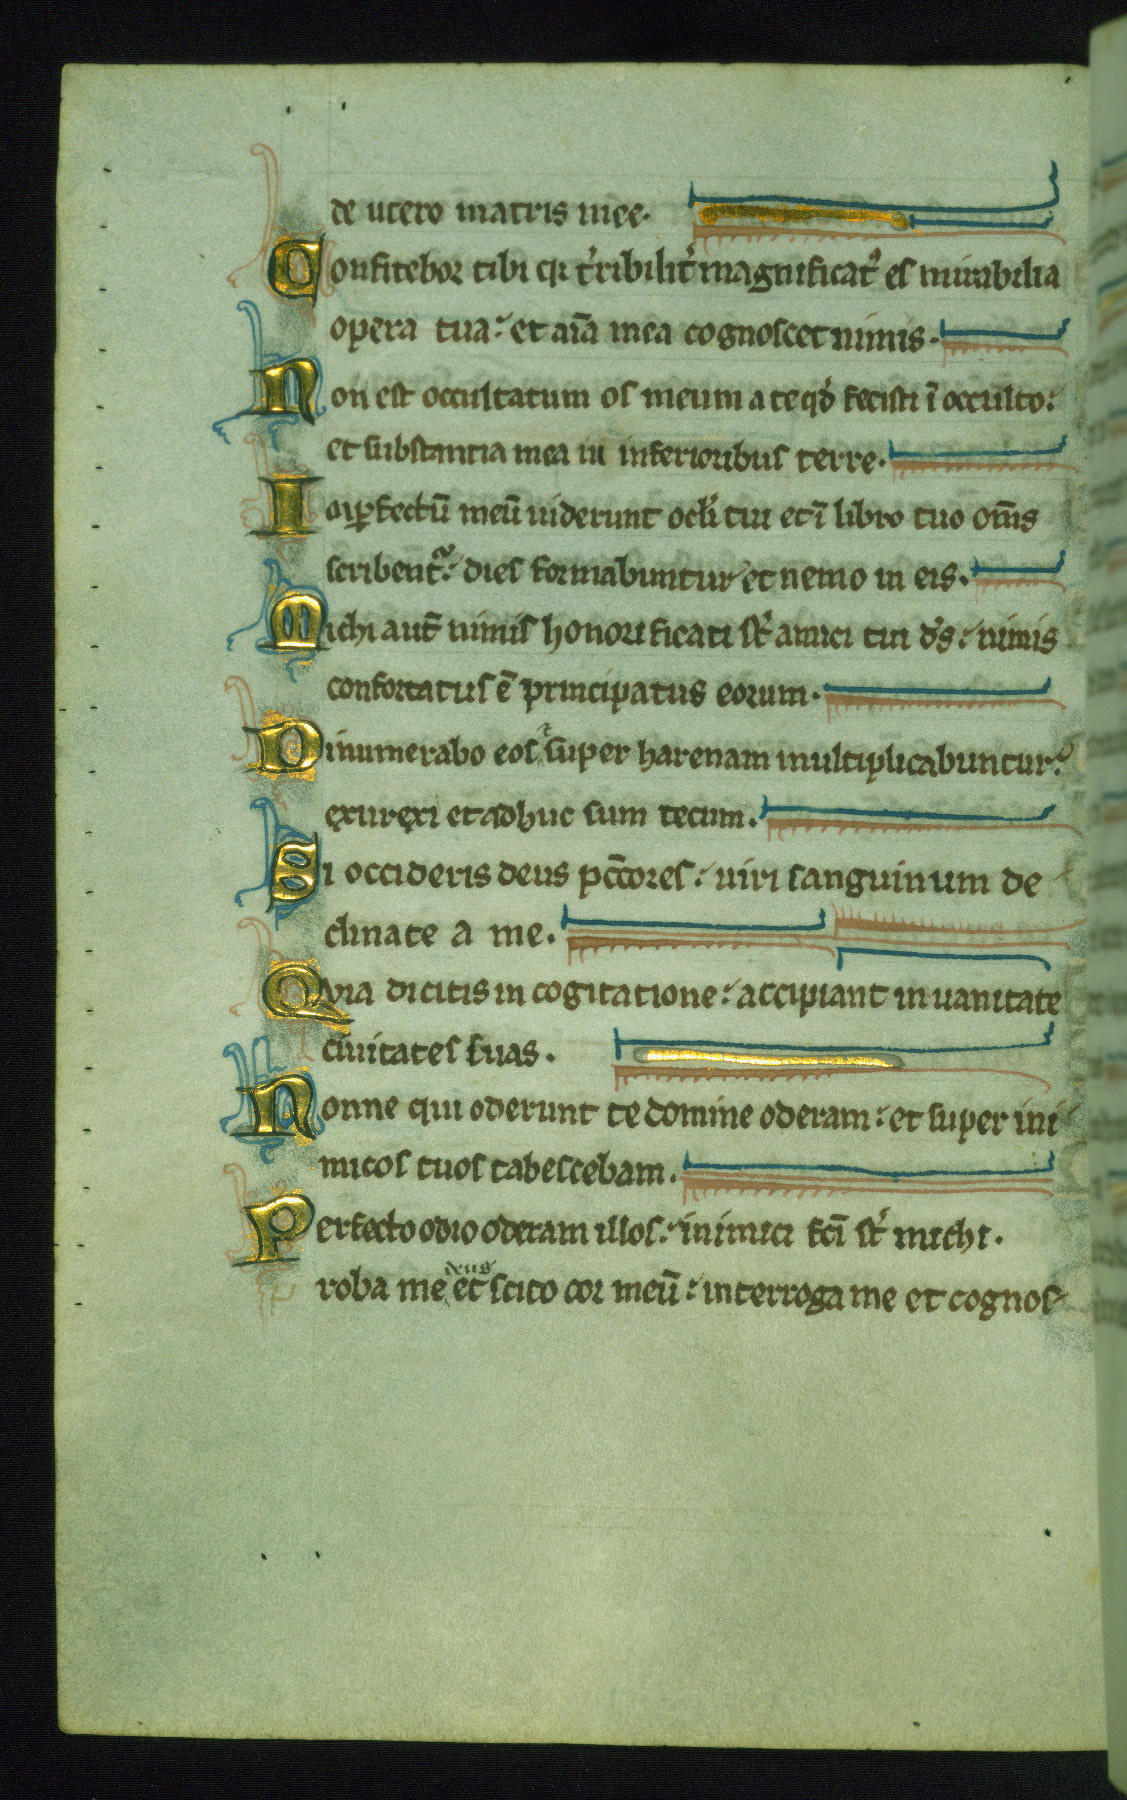 de utero matris mee.
Confitebor tibi qr t'ribilit' magnificat' es mirabilia
opera tua: et aīa mea cognoscet nimis.
Non est occultatum os meum a te qd' fecisti ī occulto:
et substantia mea in inferioribus terre.
Inꝑfectū meū uiderunt ocl'i tui et ī libro tuo om̄s
scribent': dies formabuntur et nemo in eis.
Michi aut̄ nimis honorificati st' amici tui d's: nimis
confortatus ē principatus eorum.
Dinumerabo eos super harenam multiplicabuntur:
exurexi et adhuc sum tecum.
Si occideris deus pc̄cores: uiri sanguinum de
clinate a me.
Quia dicitis in cogitatione: accipiant in uanitate
ciuitates suas.
Nonne qui oderunt te domine oderam: et super ini
micos tuos tabescebam.
Perfecto odio oderam illos: inimici fc̄i st' michi.
roba me deus et scito cor meū: interroga me et cognos